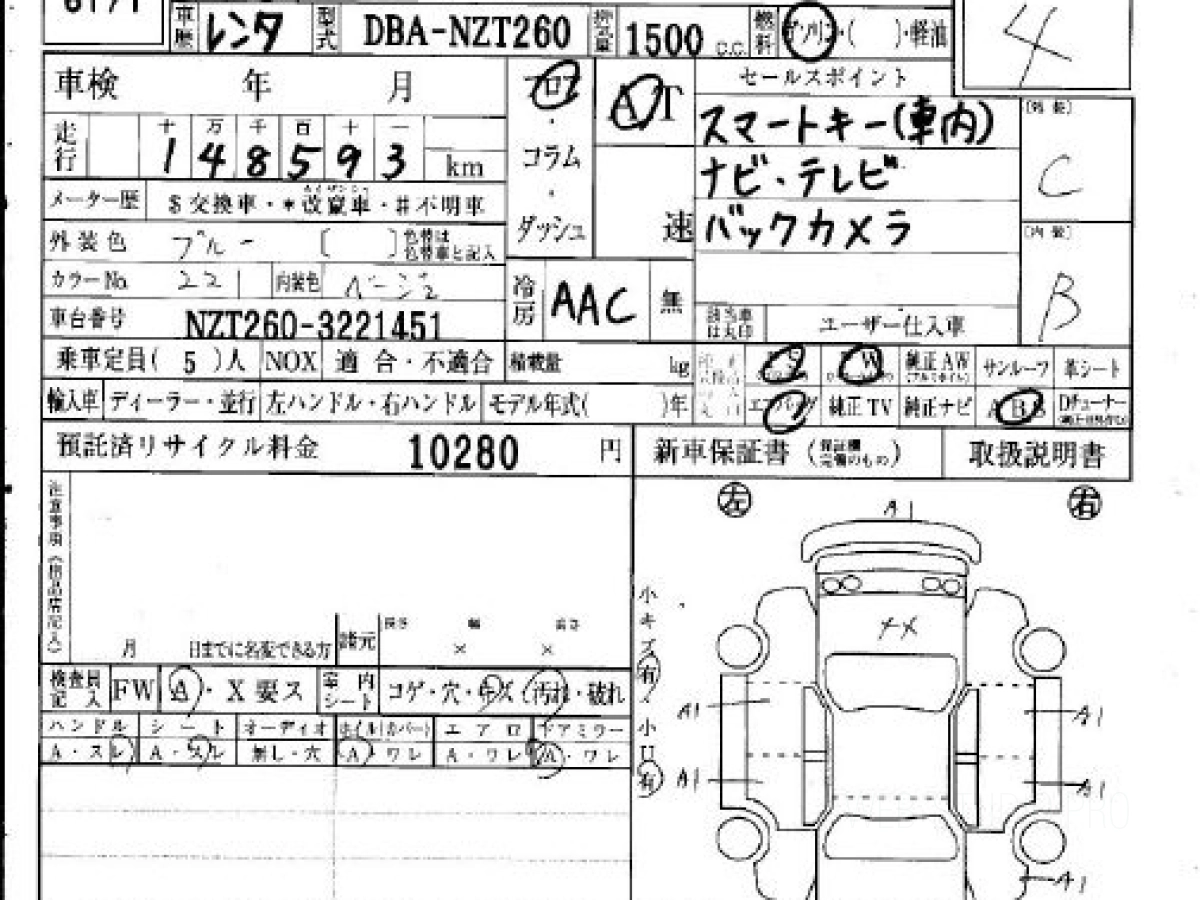 車歴 レンタ 型式 DBA-NZT260 排気量 1500 C.C. 燃料 ガソリン・( )・軽油
4
車検 年 月 フロア AT セールスポイント
[外装]
スマートキー(車内)
十 万 千 百 十 一
走行 1 4 8 5 9 3 km
・コラム
C
ナビ・テレビ
メーター歴 $交換車・*改竄車・#不明車
・ダッシュ 速 バックカメラ
[内装]
外装色 ブルー [ ] 色替は色替車と記入
カラーNo. 221 内装色 ベージュ
冷房 AAC 無
B
車台番号 NZT260-3221451
該当車は丸印 ユーザー仕入車
乗車定員( 5 )人 NOX 適合・不適合 積載量 kg
PS PW 純正AW サンルーフ 革シート
輸入車 ディーラー・並行 左ハンドル・右ハンドル モデル年式( )年
エアバッグ 純正TV 純正ナビ ABS Dチューナー
預託済リサイクル料金 10280 円 新車保証書 (保証欄完備のもの) 取扱説明書
注意事項
左 A1 右
小キズ 有
メメ
月 日までに名変できる方 諸元 長さ × 幅 × 高さ
検査員記入 FW A・X要ス 室内シート コゲ・穴・キズ・汚れ・破れ
ハンドル シート オーディオ ホイル(カバー) エアロ ドアミラー
A・スレ A・スレ 無し・穴 A・ワレ A・ワレ A・ワレ
小U 有
A1 A1
A1 A1
A1